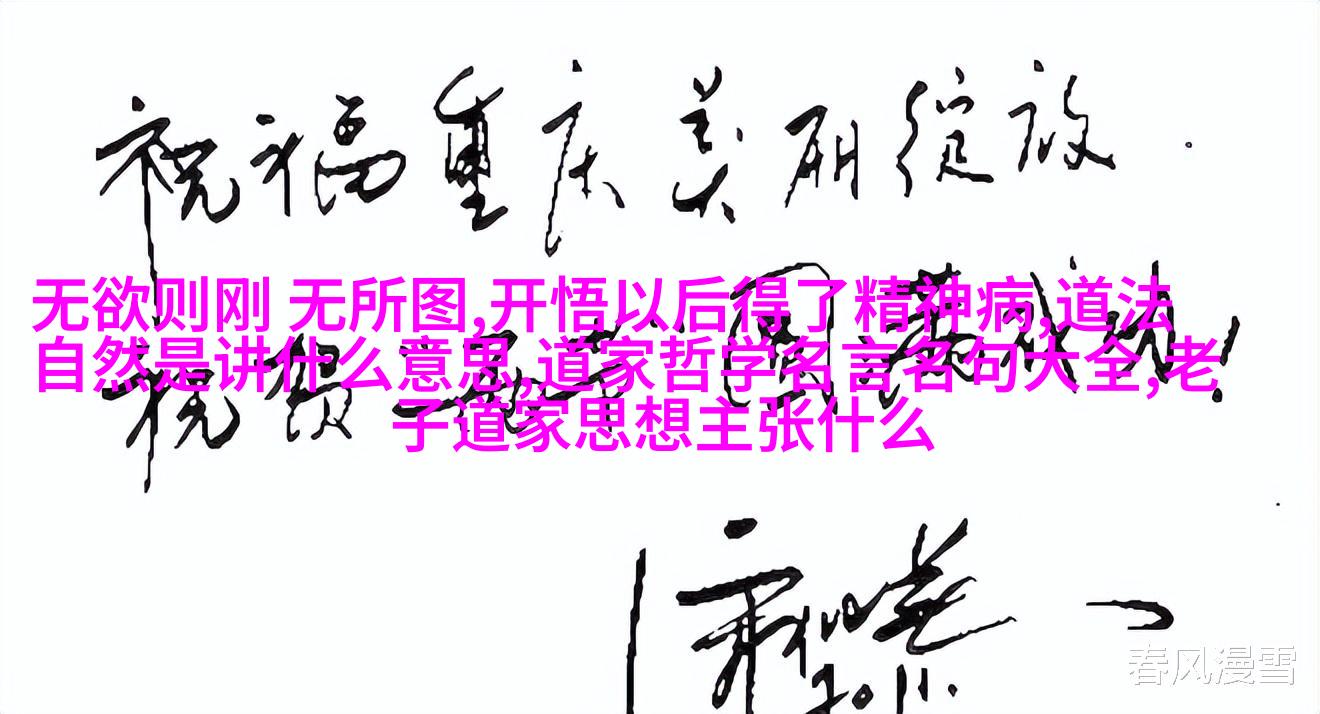 祝福重庆美丽绽放.
无欲则刚 无所图,开悟以后得了精神病,道法
自然是讲什么意思,道家哲学名言名句大全,老
子道家思想主张什么
祝贺
2011.
春风漫雪